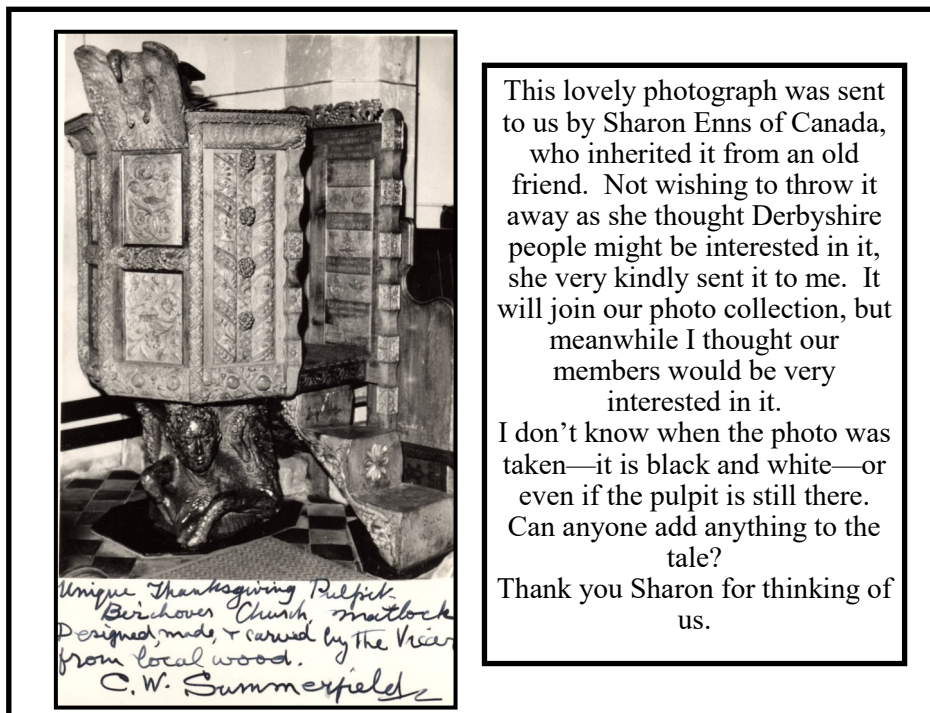 Unique Thanksgiving Pulpit.
Birchover Church, Matlock
Designed, made, & carved by the Vicar
from local wood.
C.W. Summerfield
This lovely photograph was sent
to us by Sharon Enns of Canada,
who inherited it from an old
friend.  Not wishing to throw it
away as she thought Derbyshire
people might be interested in it,
she very kindly sent it to me.  It
will join our photo collection, but
meanwhile I thought our
members would be very
interested in it.
I don’t know when the photo was
taken—it is black and white—or
even if the pulpit is still there.
Can anyone add anything to the
tale?
Thank you Sharon for thinking of
us.